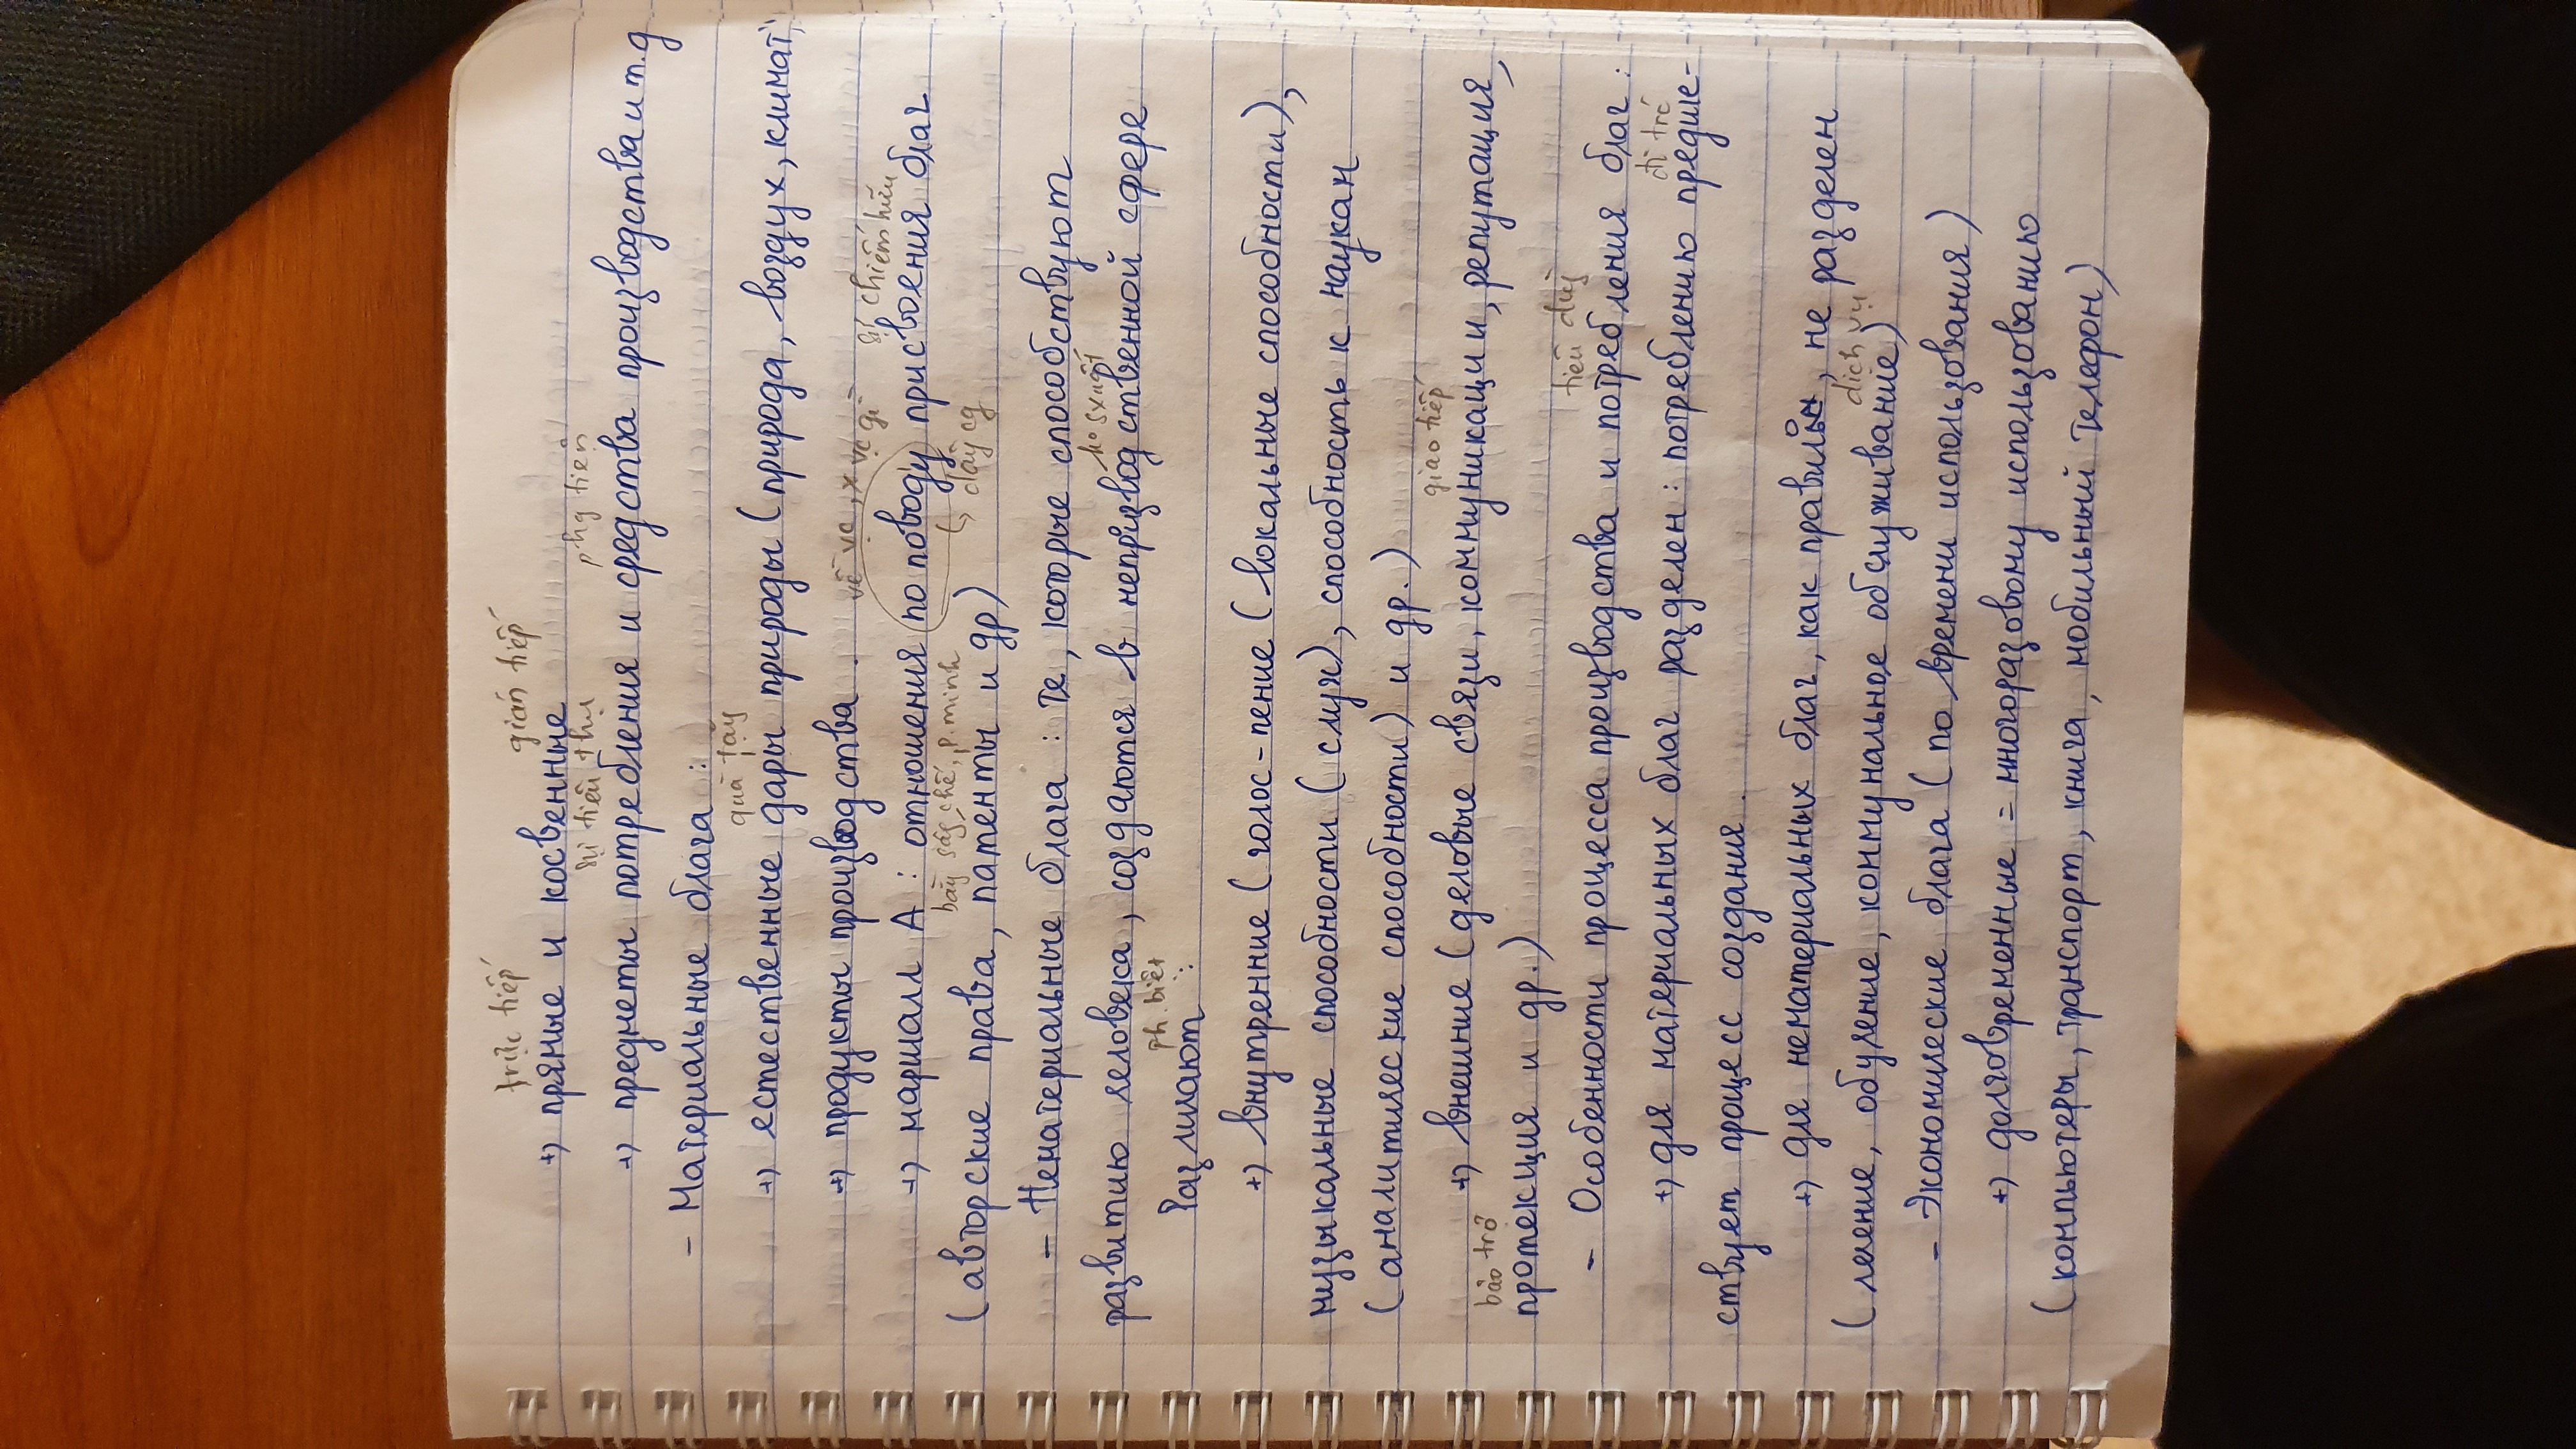 trực tiếp gián tiếp
+) прямые и косвенные
sự tiêu thụ phg tiện
+) предметы потребления и средства производства и т.д
- Материальные блага :
quà tặng
+) естественные дары природы (природа, воздух, климат,
+) продукты производства
về vc, x vc gì sự chiếm hữu
+) маршалл А : отношения по поводу присвоения благ
bằng ság chế, p.minh
(авторские права, патенты и др)
- Нематериальные блага : Те, которые способствуют
ko sx uất
развитию человека, создаются в непроизводственной сфере
ph. biệt
Различают :
+) внутренние (голос-пение (вокальные способности),
музыкальные способности (слух), способность к наукам
(аналитические способности) и др.)
giao tiếp
+) внешние (деловые связи, коммуникации, репутация,
bảo trợ
протекция и др.)
tiêu dùg
- Особенности процесса производства и потребления благ :
đi trc
+) для материальных благ разделен : потреблению предше-
ствует процесс создания
+) для нематериальных благ, как правило, не разделен
dịch vụ
(лечение, обучение, коммунальное обслуживание)
- Экономические блага (по времени использования)
+) долговременные = многоразовому использованию
(компьютеры, транспорт, книга, мобильный Телефон)